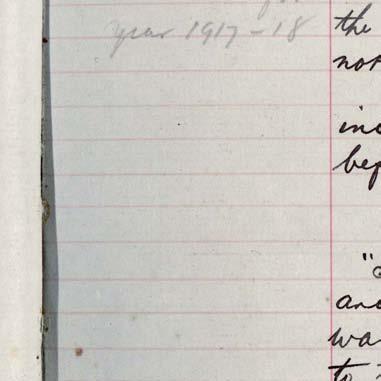 year 1917-18
the
not
inc
bef
"
and
wa
to